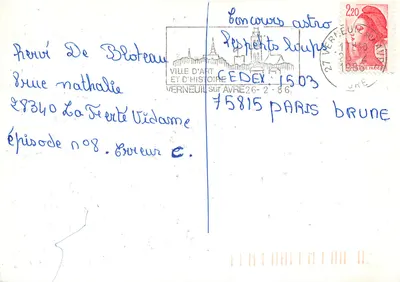 Hervé De Bloteau
8 rue nathalie
28340 La Ferté Vidame
épisode n°8. Erreur C.
Concours astro
Serpents loups
CEDEX 1503
75815 PARIS BRUNE
VILLE D'ART
ET D'HISTOIRE
VERNEUIL sur AVRE 26-2-86
2,20
27 VERNEUIL
1986
EURE